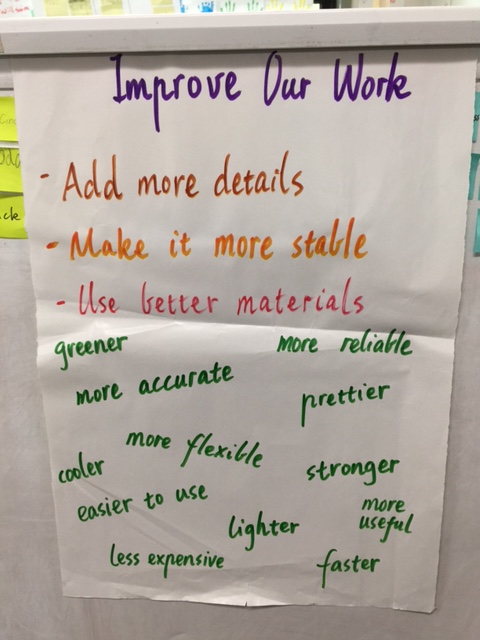 Improve Our Work
- Add more details
- Make it more stable
- Use better materials
greener
more reliable
more accurate
prettier
more flexible
cooler
stronger
easier to use
more
useful
lighter
less expensive
faster
ck